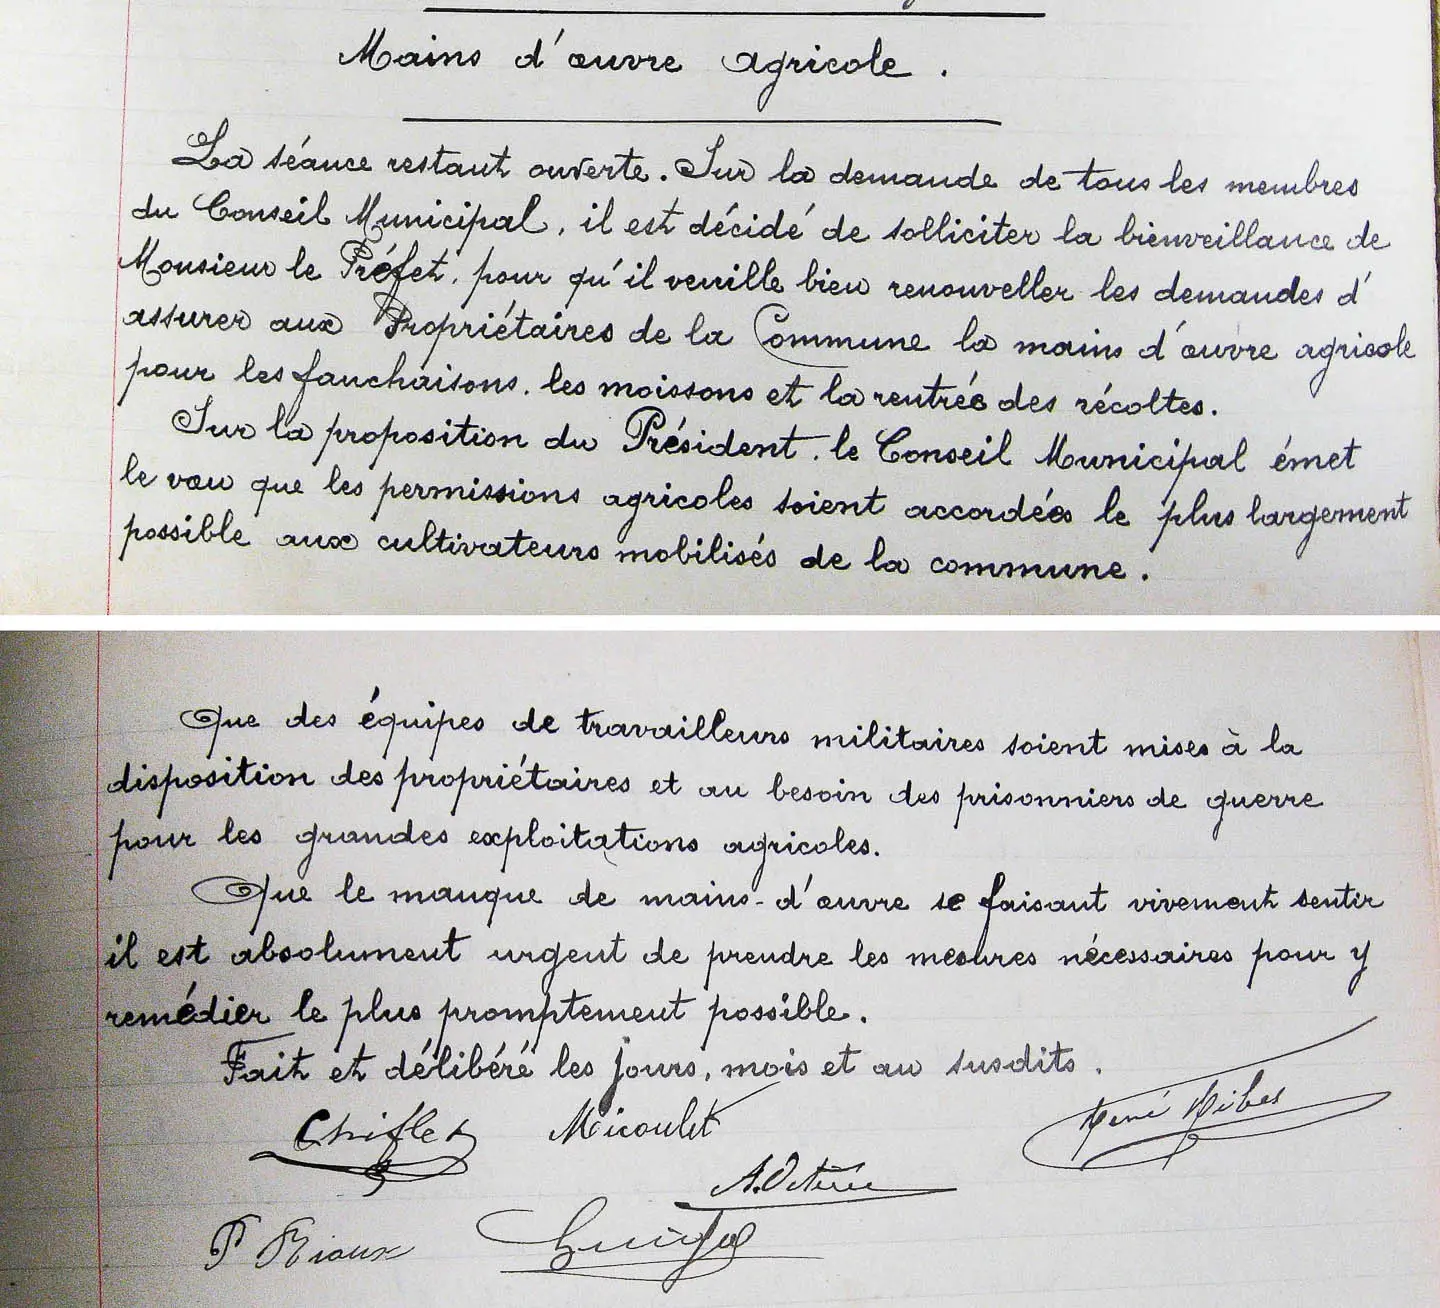 Mains d'œuvre agricole.
La séance restant ouverte. Sur la demande de tous les membres
du Conseil Municipal, il est décidé de solliciter la bienveillance de
Monsieur le Préfet, pour qu'il veuille bien renouveller les demandes d'
assurer aux Propriétaires de la Commune la mains d'œuvre agricole
pour les fauchaisons, les moissons et la rentrée des récoltes.
Sur la proposition du Président, le Conseil Municipal émet
le vœu que les permissions agricoles soient accordées le plus largement
possible aux cultivateurs mobilisés de la commune.
Que des équipes de travailleurs militaires soient mises à la
disposition des propriétaires et au besoin des prisonniers de guerre
pour les grandes exploitations agricoles.
Que le manque de mains-d'œuvre se faisant vivement sentir
il est absolument urgent de prendre les mesures nécessaires pour y
remédier le plus promptement possible.
Fait et délibéré les jours, mois et au susdits.
Chiflet Micoulet René Ribes
P Rioux